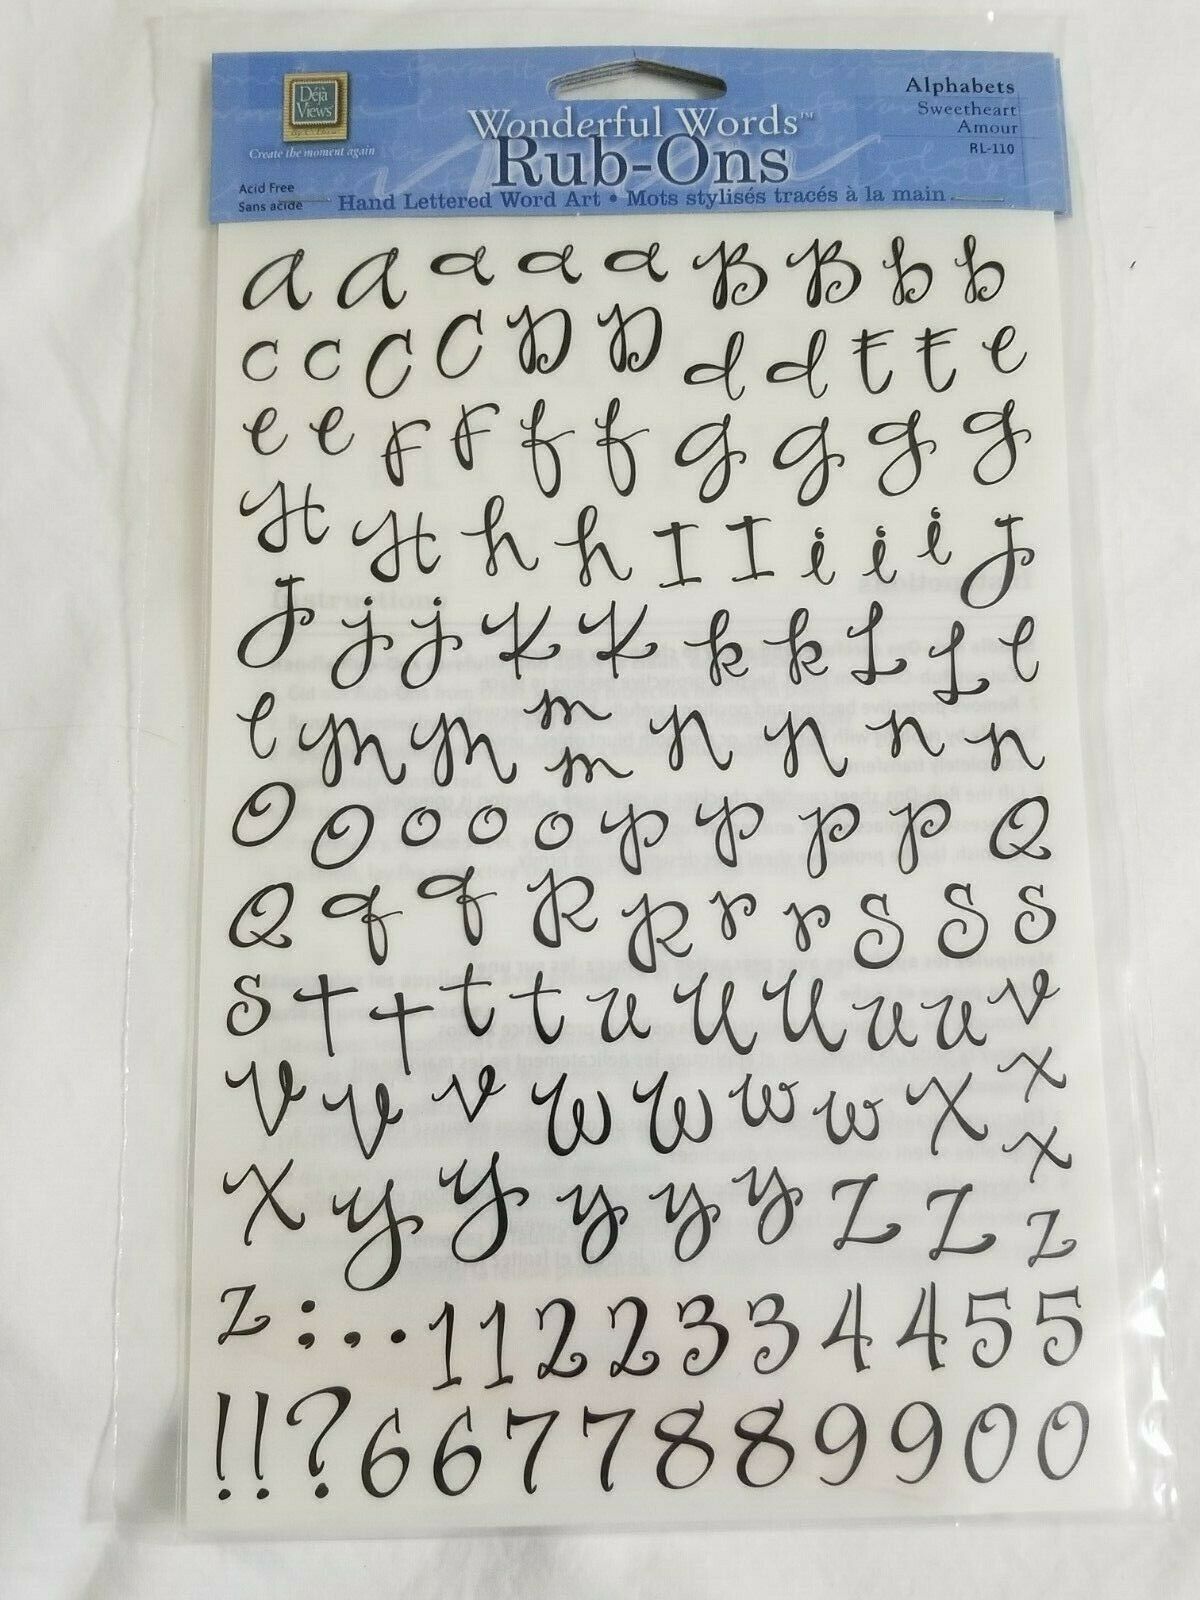 Déjà
Views
by C-Thru
Create the moment again
Acid Free
Sans acide
Wonderful Words™
Rub-Ons
Hand Lettered Word Art • Mots stylisés tracés à la main
Alphabets
Sweetheart
Amour
RL-110
a a a a a B B b b
c c C C D D d d E E e
e e F F f f g g g g
H H h h I I i i i J
J j j K K k k L L l
l M M m m N N n n
O O o o o P P p p Q
Q q q R R r r S S s
s T T t t u U U u u v
V V v W W w w X x
X Y Y y y y Z Z x z
z : . . 1 1 2 2 3 3 4 4 5 5
! ! ? 6 6 7 7 8 8 9 9 0 0